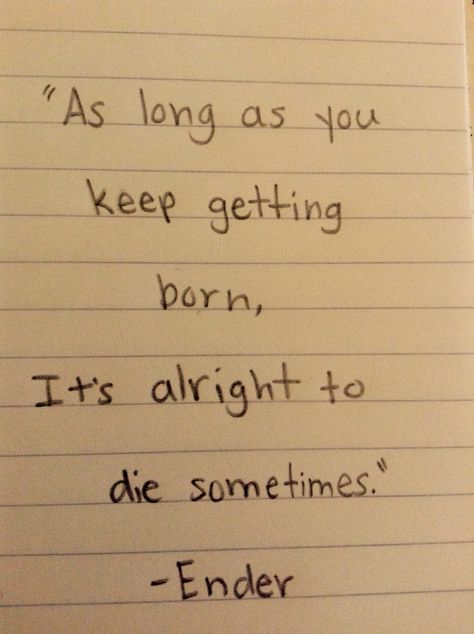 "As long as you
keep getting
born,
It's alright to
die sometimes."
-Ender